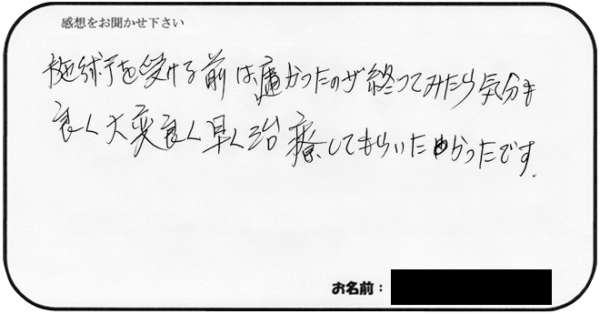 感想をお聞かせ下さい
施術を受ける前は痛かったのが終ってみたら気分も
良く大変良く早く治療してもらいたかったです.
お名前：